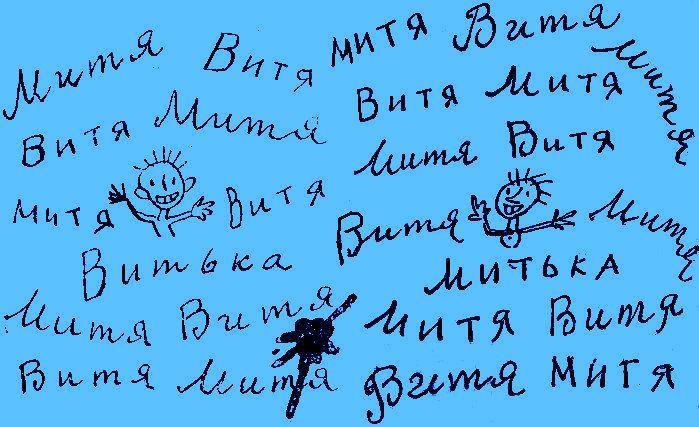 Митя Витя митя Витя Митя
Витя Митя Витя Митя
митя Витя Митя Витя
Витька Витя Митя
митька
Митя Витя Митя Витя
Витя Митя Витя митя